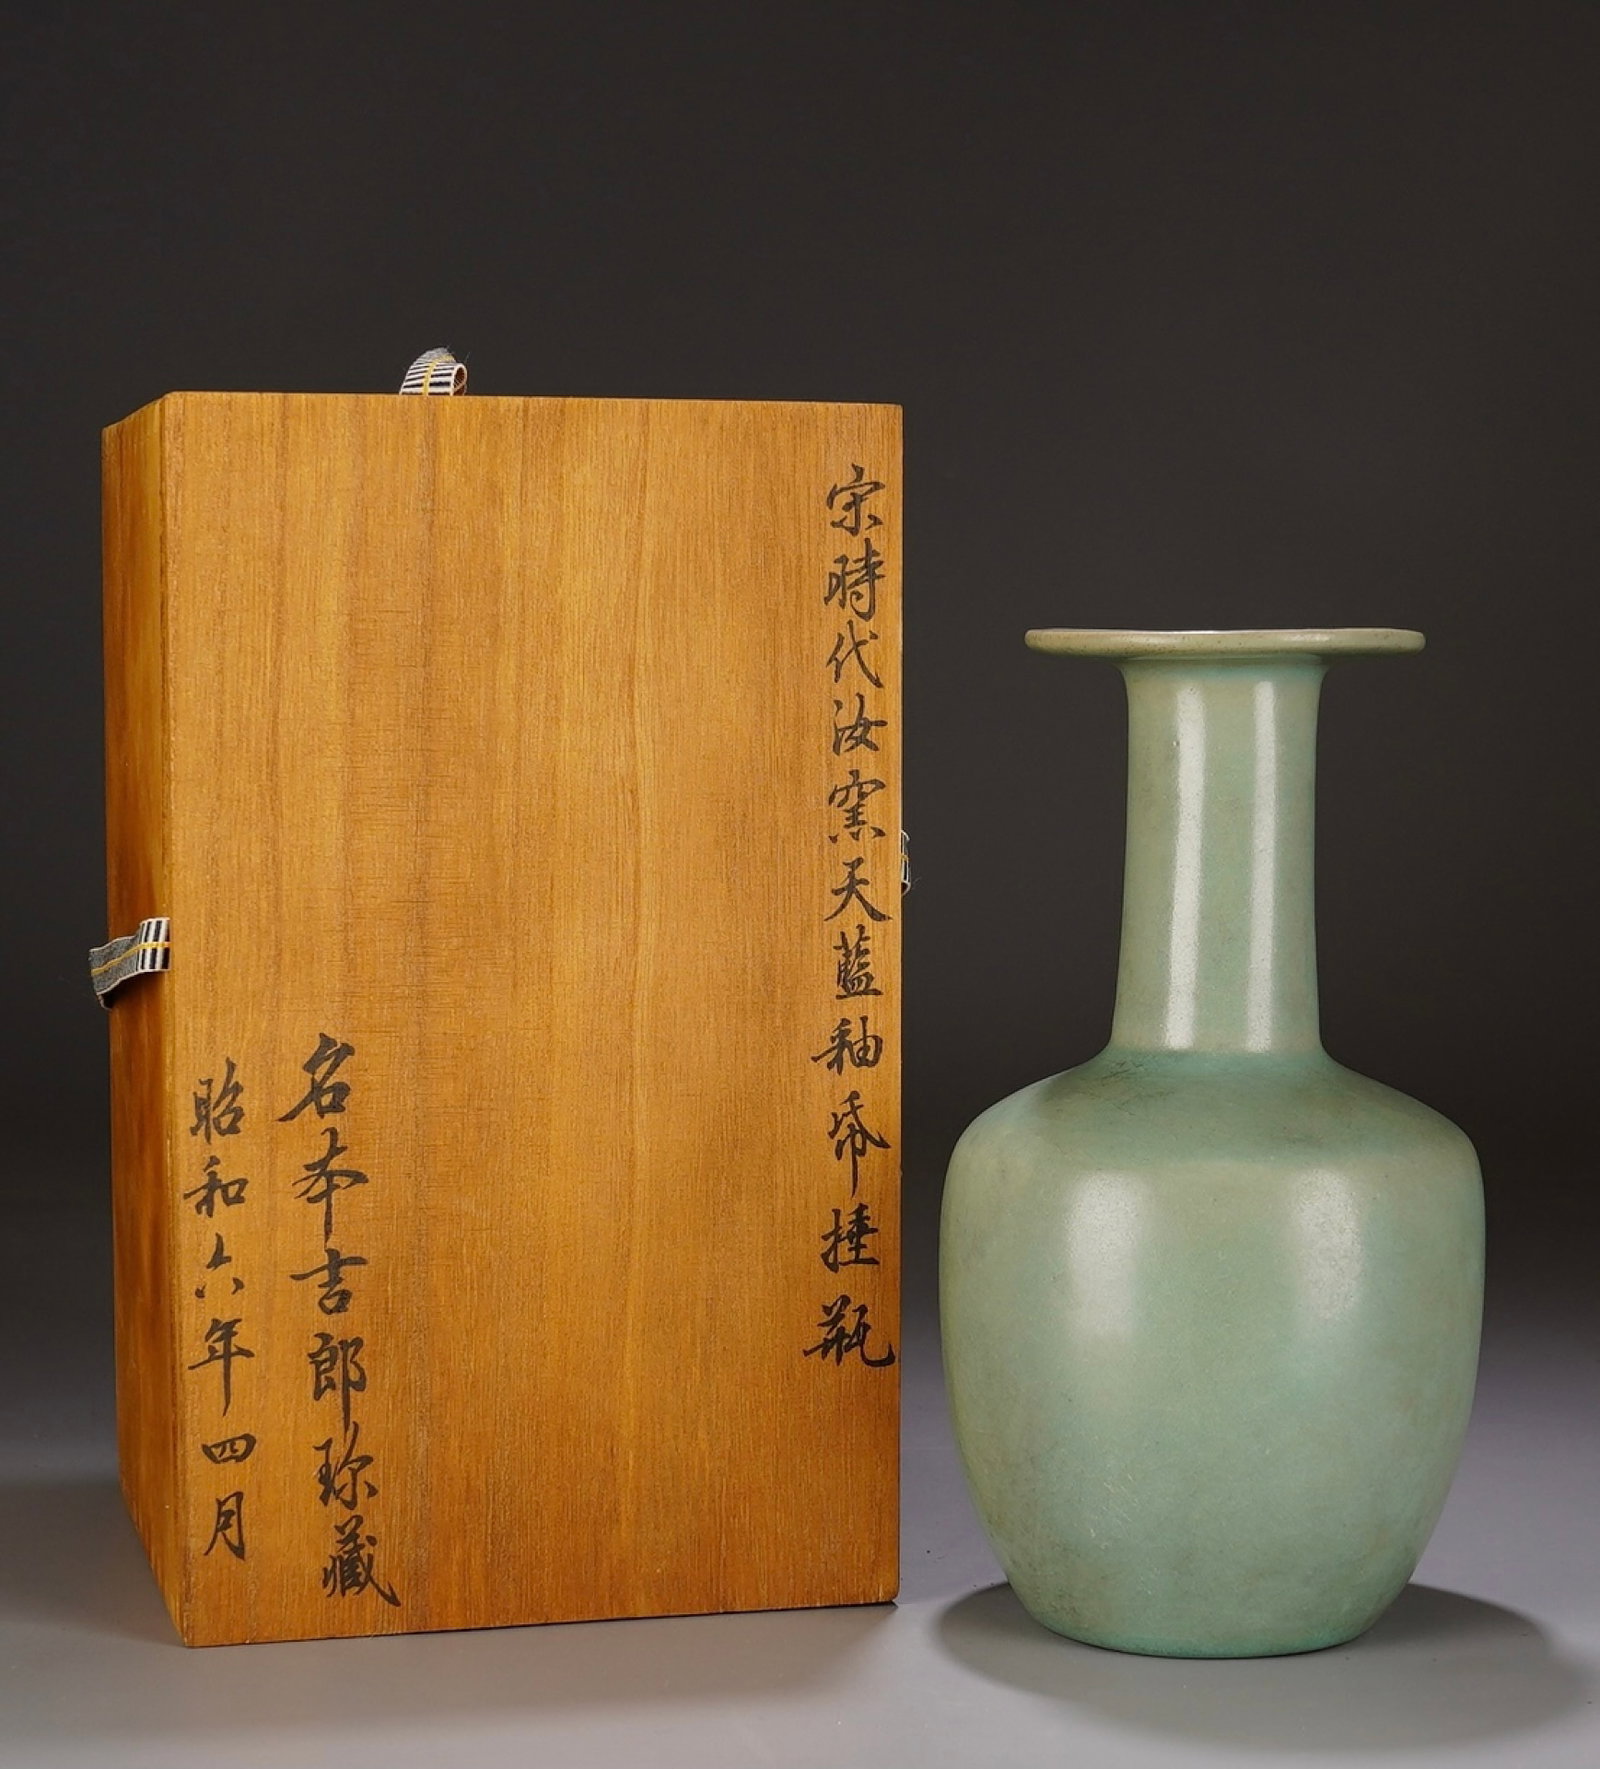 宋時代汝窯天藍釉帋捶瓶
名本吉郎珎藏
昭和六年四月